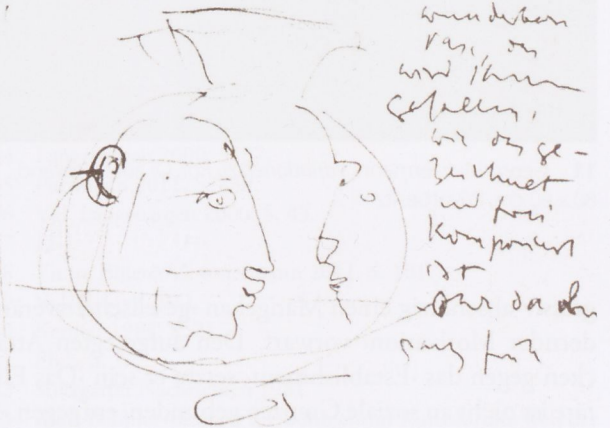 wunderbare
Vase, das
wird Ihnen
gefallen,
wie das ge-
zeichnet
und frei
komponiert
ist
Ohr da oben
ganz früh